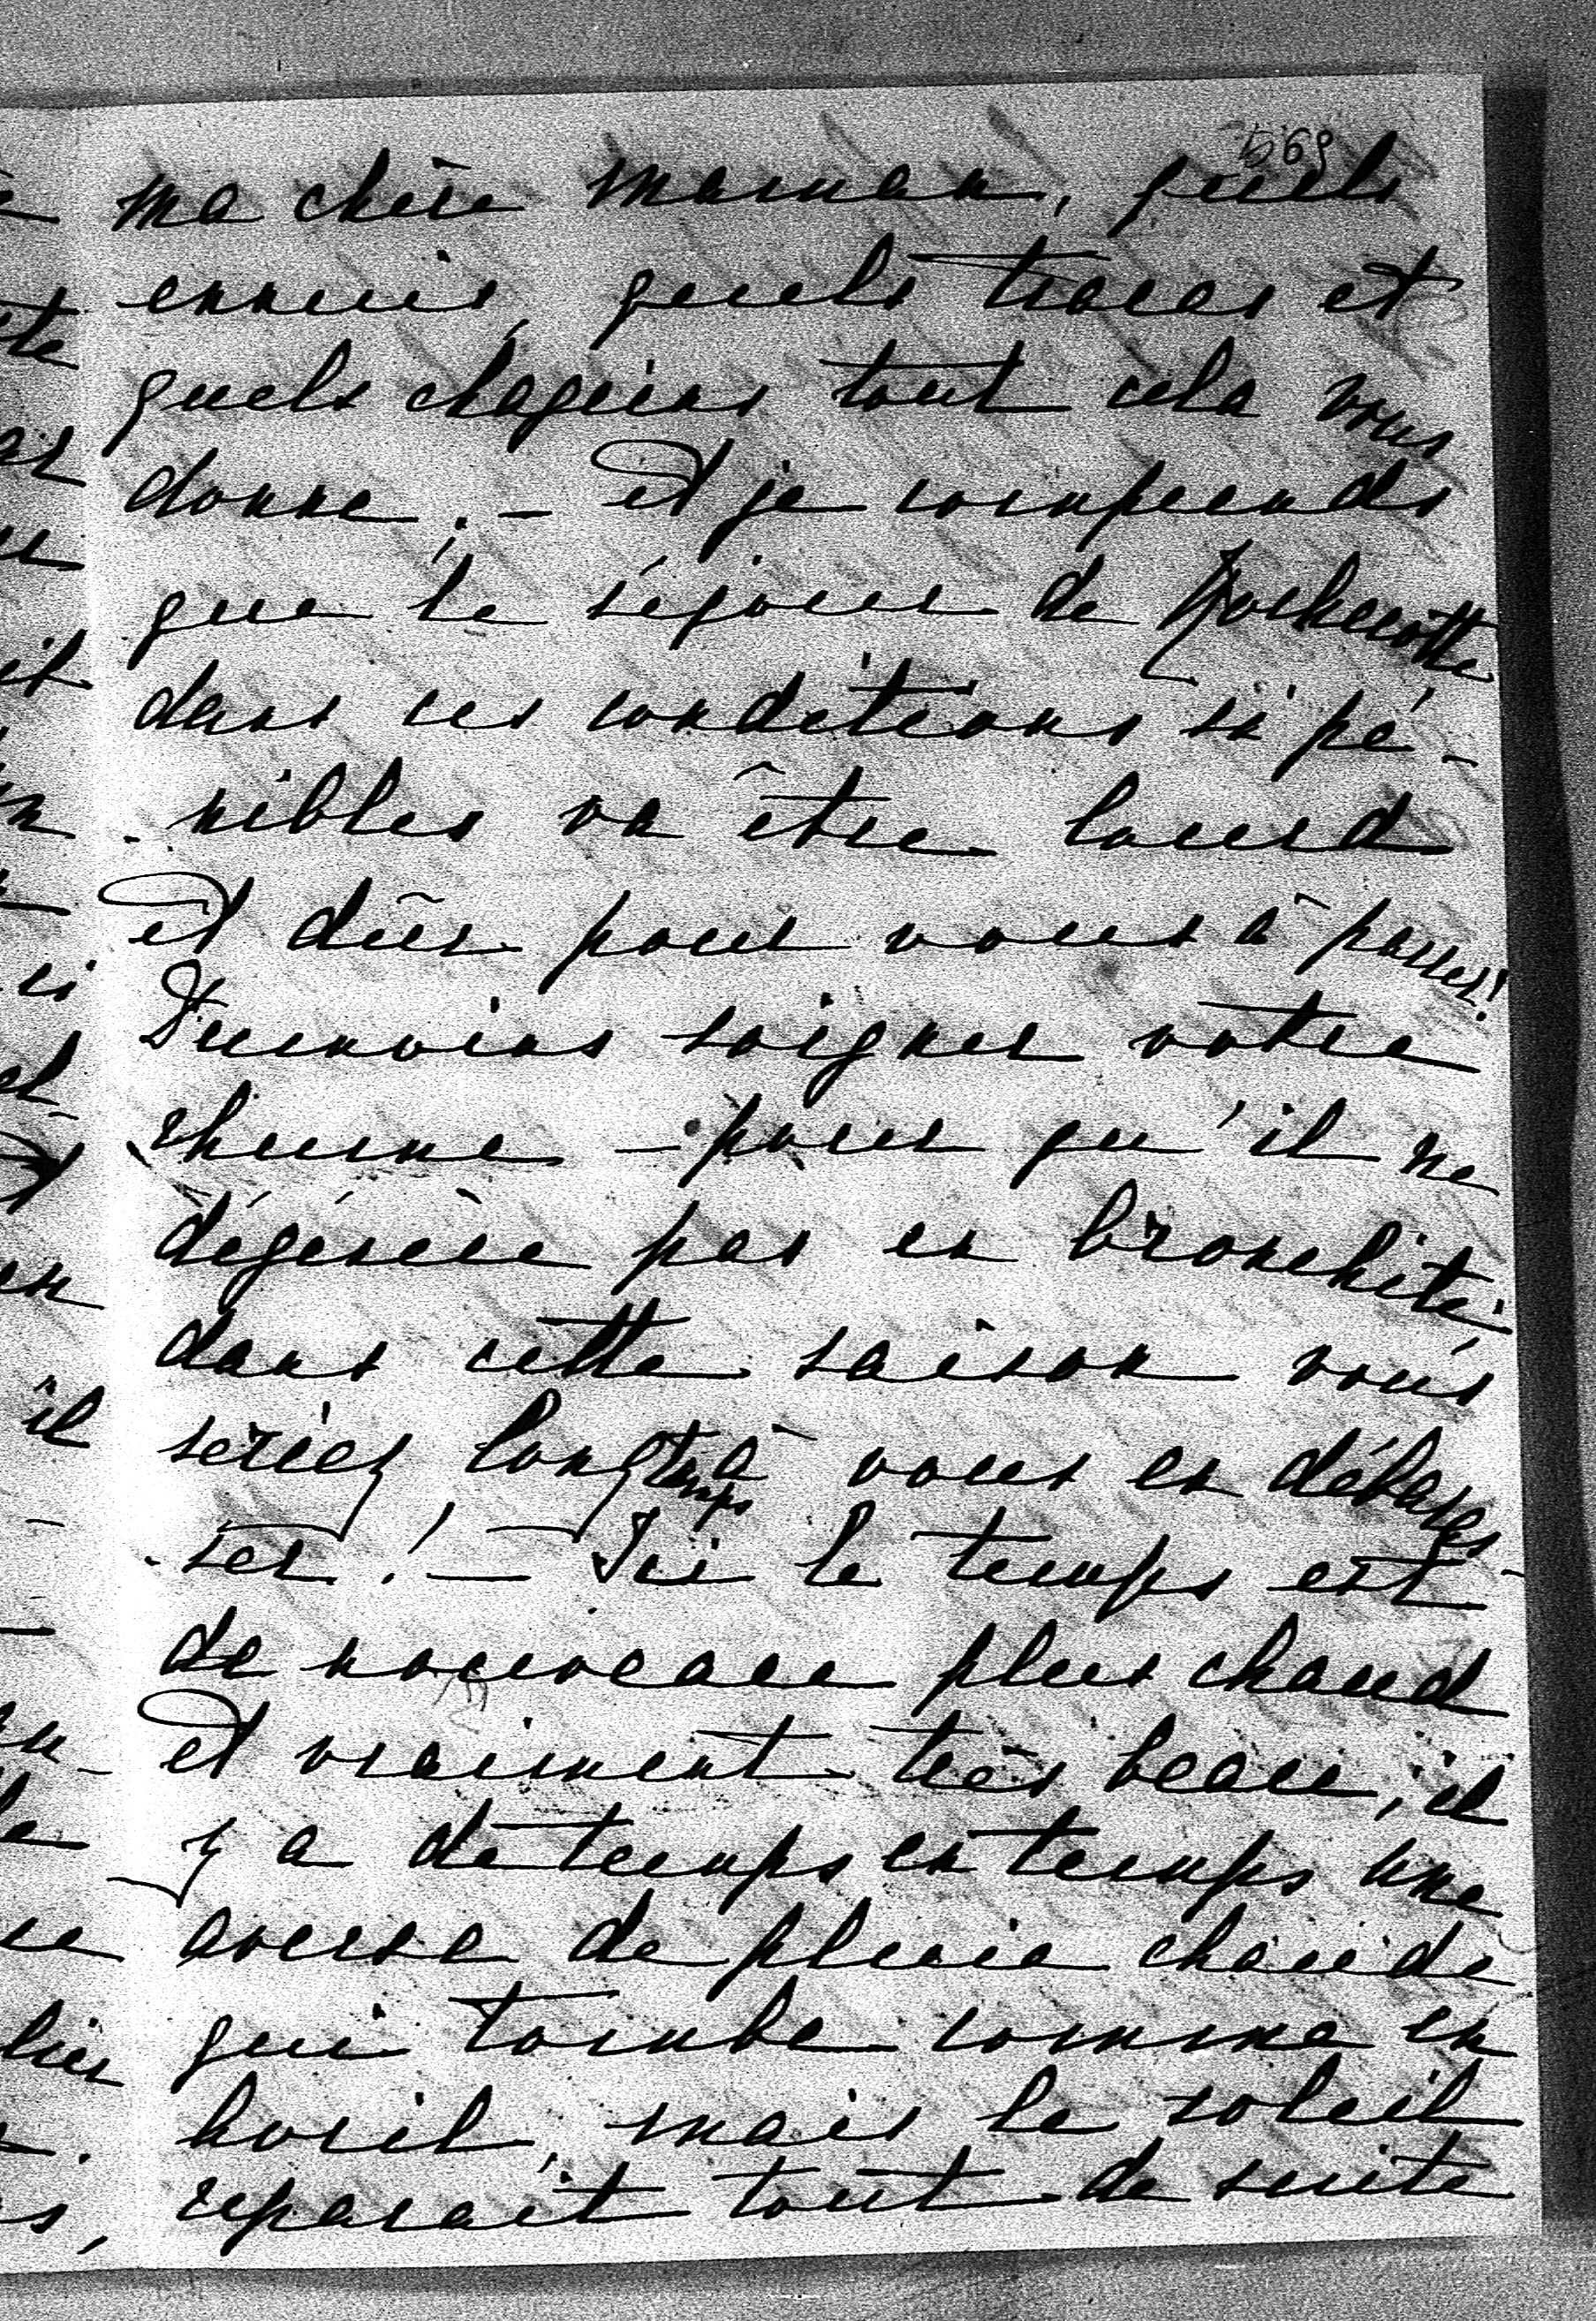 569
ma chère maman, quels
ennuis, quels tracas et
quels chagrins tout cela vous
donne. – Et je comprends
que le séjour de Rochecotte
dans ces conditions si pé-
nibles va être lourd
et dûr pour vous à passer!
Du moins soignez votre
rhume – pour qu'il ne
dégénère pas en bronchite;
dans cette saison vous
seriez longtemps à vous en débarras-
ser! – Ici le temps est
de nouveau plus chaud
et vraiment très beau, il
y a de temps en temps une
averse de pluie chaude
qui tombe comme en
Avril, mais le soleil
reparaît tout de suite